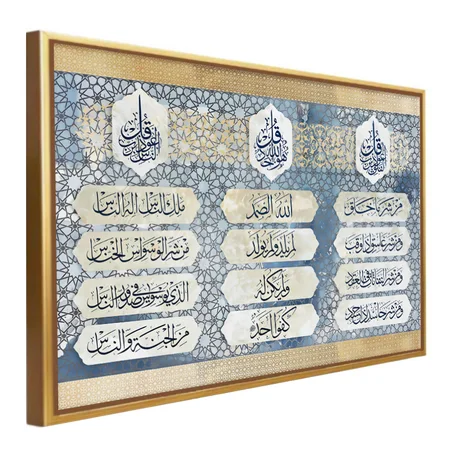 قل أعوذ برب الفلق
من شر ما خلق
ومن شر غاسق إذا وقب
ومن شر النفاثات في العقد
ومن شر حاسد إذا حسد
قل هو الله أحد
الله الصمد
لم يلد ولم يولد
ولم يكن له
كفوا أحد
قل أعوذ برب الناس
ملك الناس إله الناس
من شر الوسواس الخناس
الذي يوسوس في صدور الناس
من الجنة والناس